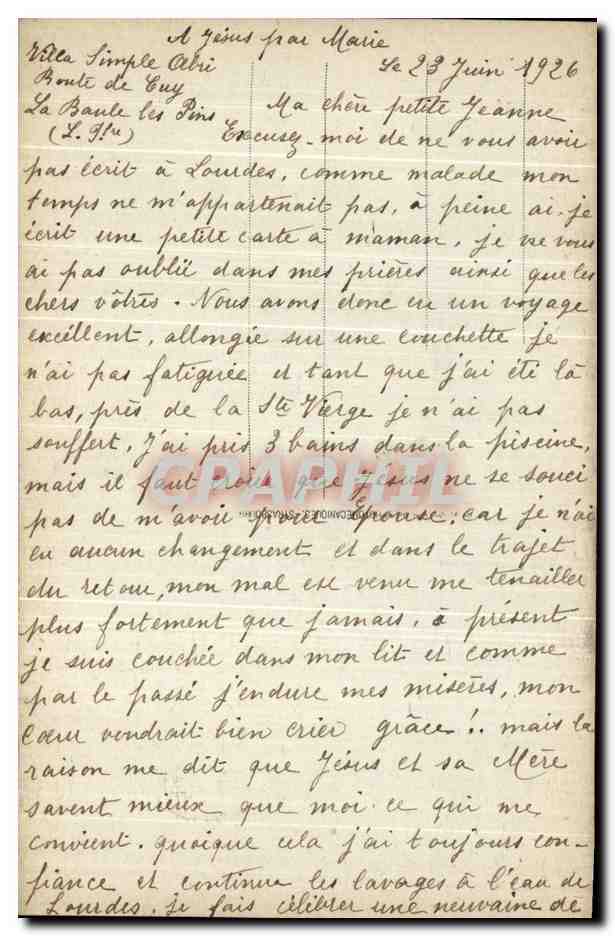 A Jésus par Marie
Villa Simple Abri
Le 23 Juin 1926
Route de Cuy
La Baule les Pins
(L. Isre)
Ma chère petite Jeanne
Excusez-moi de ne vous avoir
pas écrit à Lourdes, comme malade mon
temps ne m'appartenait pas, à peine ai-je
écrit une petite carte à maman, je ne vous
ai pas oublié dans mes prières ainsi que les
chers vôtres. Nous avons donc eu un voyage
excellent, allongée sur une couchette je
n'ai pas fatiguée et tant que j'ai été là
bas, près de la Ste Vierge je n'ai pas
souffert, J'ai pris 3 bains dans la piscine,
mais il faut croire que Jésus ne se souci
pas de m'avoir pour Epouse, car je n'ai
eu aucun changement et dans le trajet
du retour, mon mal est venu me tenailler
plus fortement que jamais, à présent
je suis couchée dans mon lit et comme
par le passé j'endure mes misères, mon
Cœur voudrait bien crier grâce!.. mais la
raison me dit que Jésus et sa Mère
savent mieux que moi ce qui me
convient. quoique cela j'ai toujours con-
fiance et continue les lavages à l'eau de
Lourdes. je fais célébrer une neuvaine de
CPAPHIL